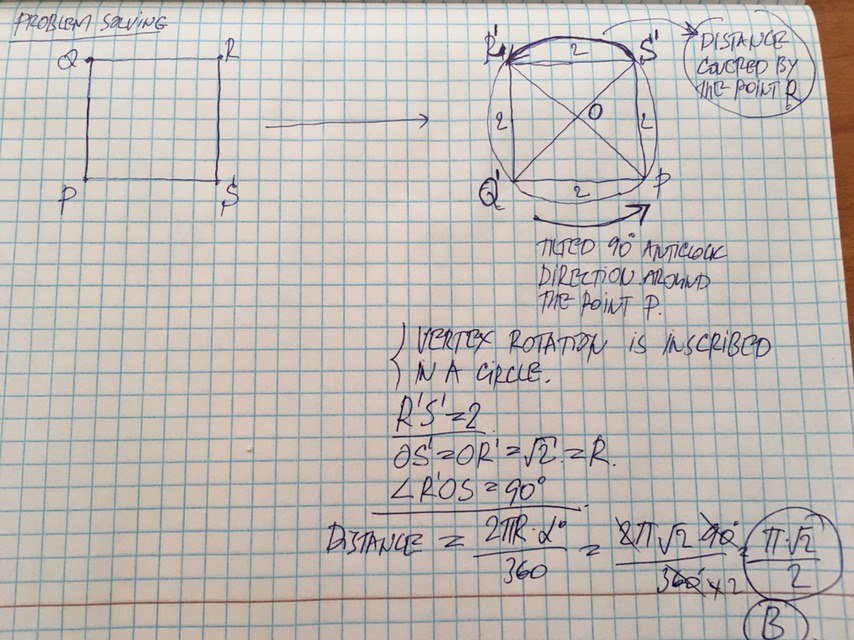 PROBLEM SOLVING
Q R
P S
R' 2 S'
2 O 2
Q' 2 P
DISTANCE
COVERED BY
THE POINT R
TILTED 90° ANTICLOCK
DIRECTION AROUND
THE POINT P.
VERTEX ROTATION IS INSCRIBED
IN A CIRCLE.
R'S'=2
OS'=OR'=√2=R.
∠R'OS=90°
DISTANCE = 2πR·α°/360 = 2π√2 90°/360°×2 = π·√2/2
B